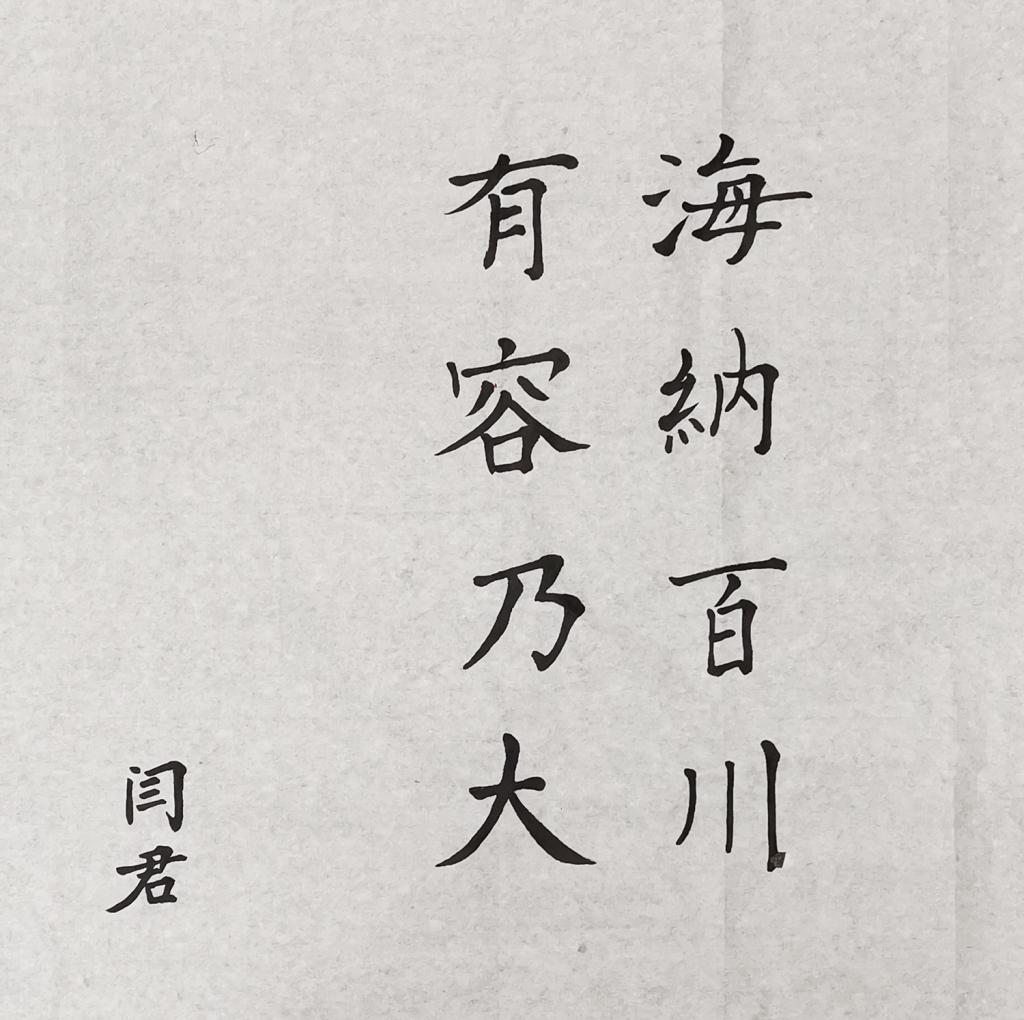 海納百川
有容乃大
闫君